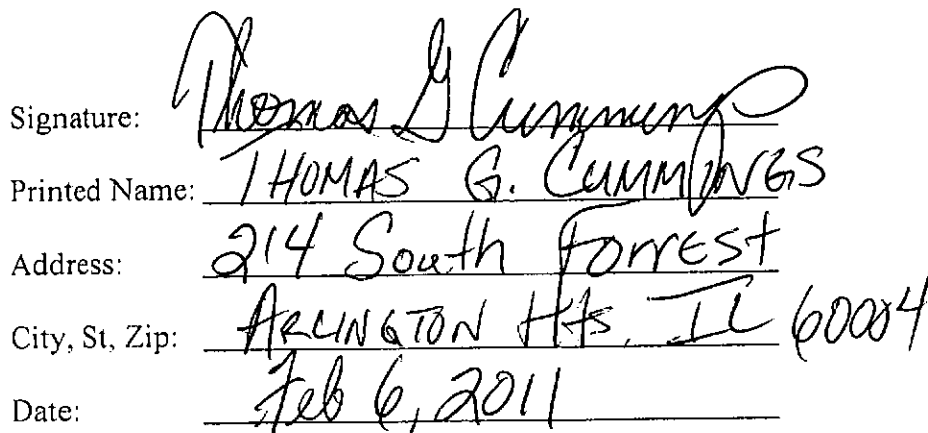 Signature: Thomas G Cummings
Printed Name: THOMAS G. CUMMINGS
Address: 214 South Forrest
City, St, Zip: ARLINGTON Hts. IL 60004
Date: Feb 6, 2011